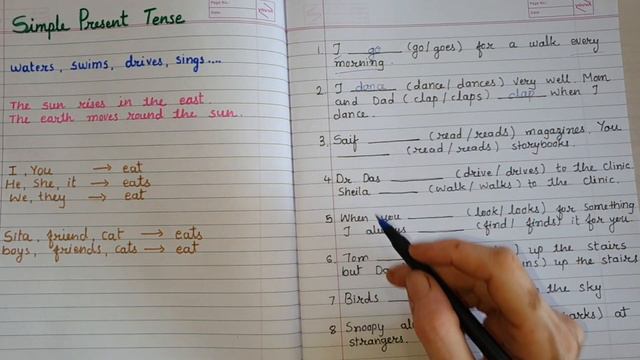 Simple Present Tense
waters, swims, drives, sings....
The sun rises in the east.
The earth moves round the sun.
I, You → eat
He, She, it → eats
We, they → eat
Sita, friend, cat → eats
boys, friends, cats → eat
1. I go (go/goes) for a walk every
morning.
2 I dance (dance/dances) very well. Mom
and Dad (clap/claps) clap when I
dance.
3. Saif ______ (read/reads) magazines. You
______ (read/reads) storybooks.
4 Dr Das ______ (drive/drives) to the clinic
Sheila ______ (walk/walks) to the clinic.
5 When you ______ (look/looks) for something
I always ______ (find/finds) it for you.
6. Tom ______ up the stairs
but up the stairs
7 Birds ______ the sky
8 Snoopy at
strangers.